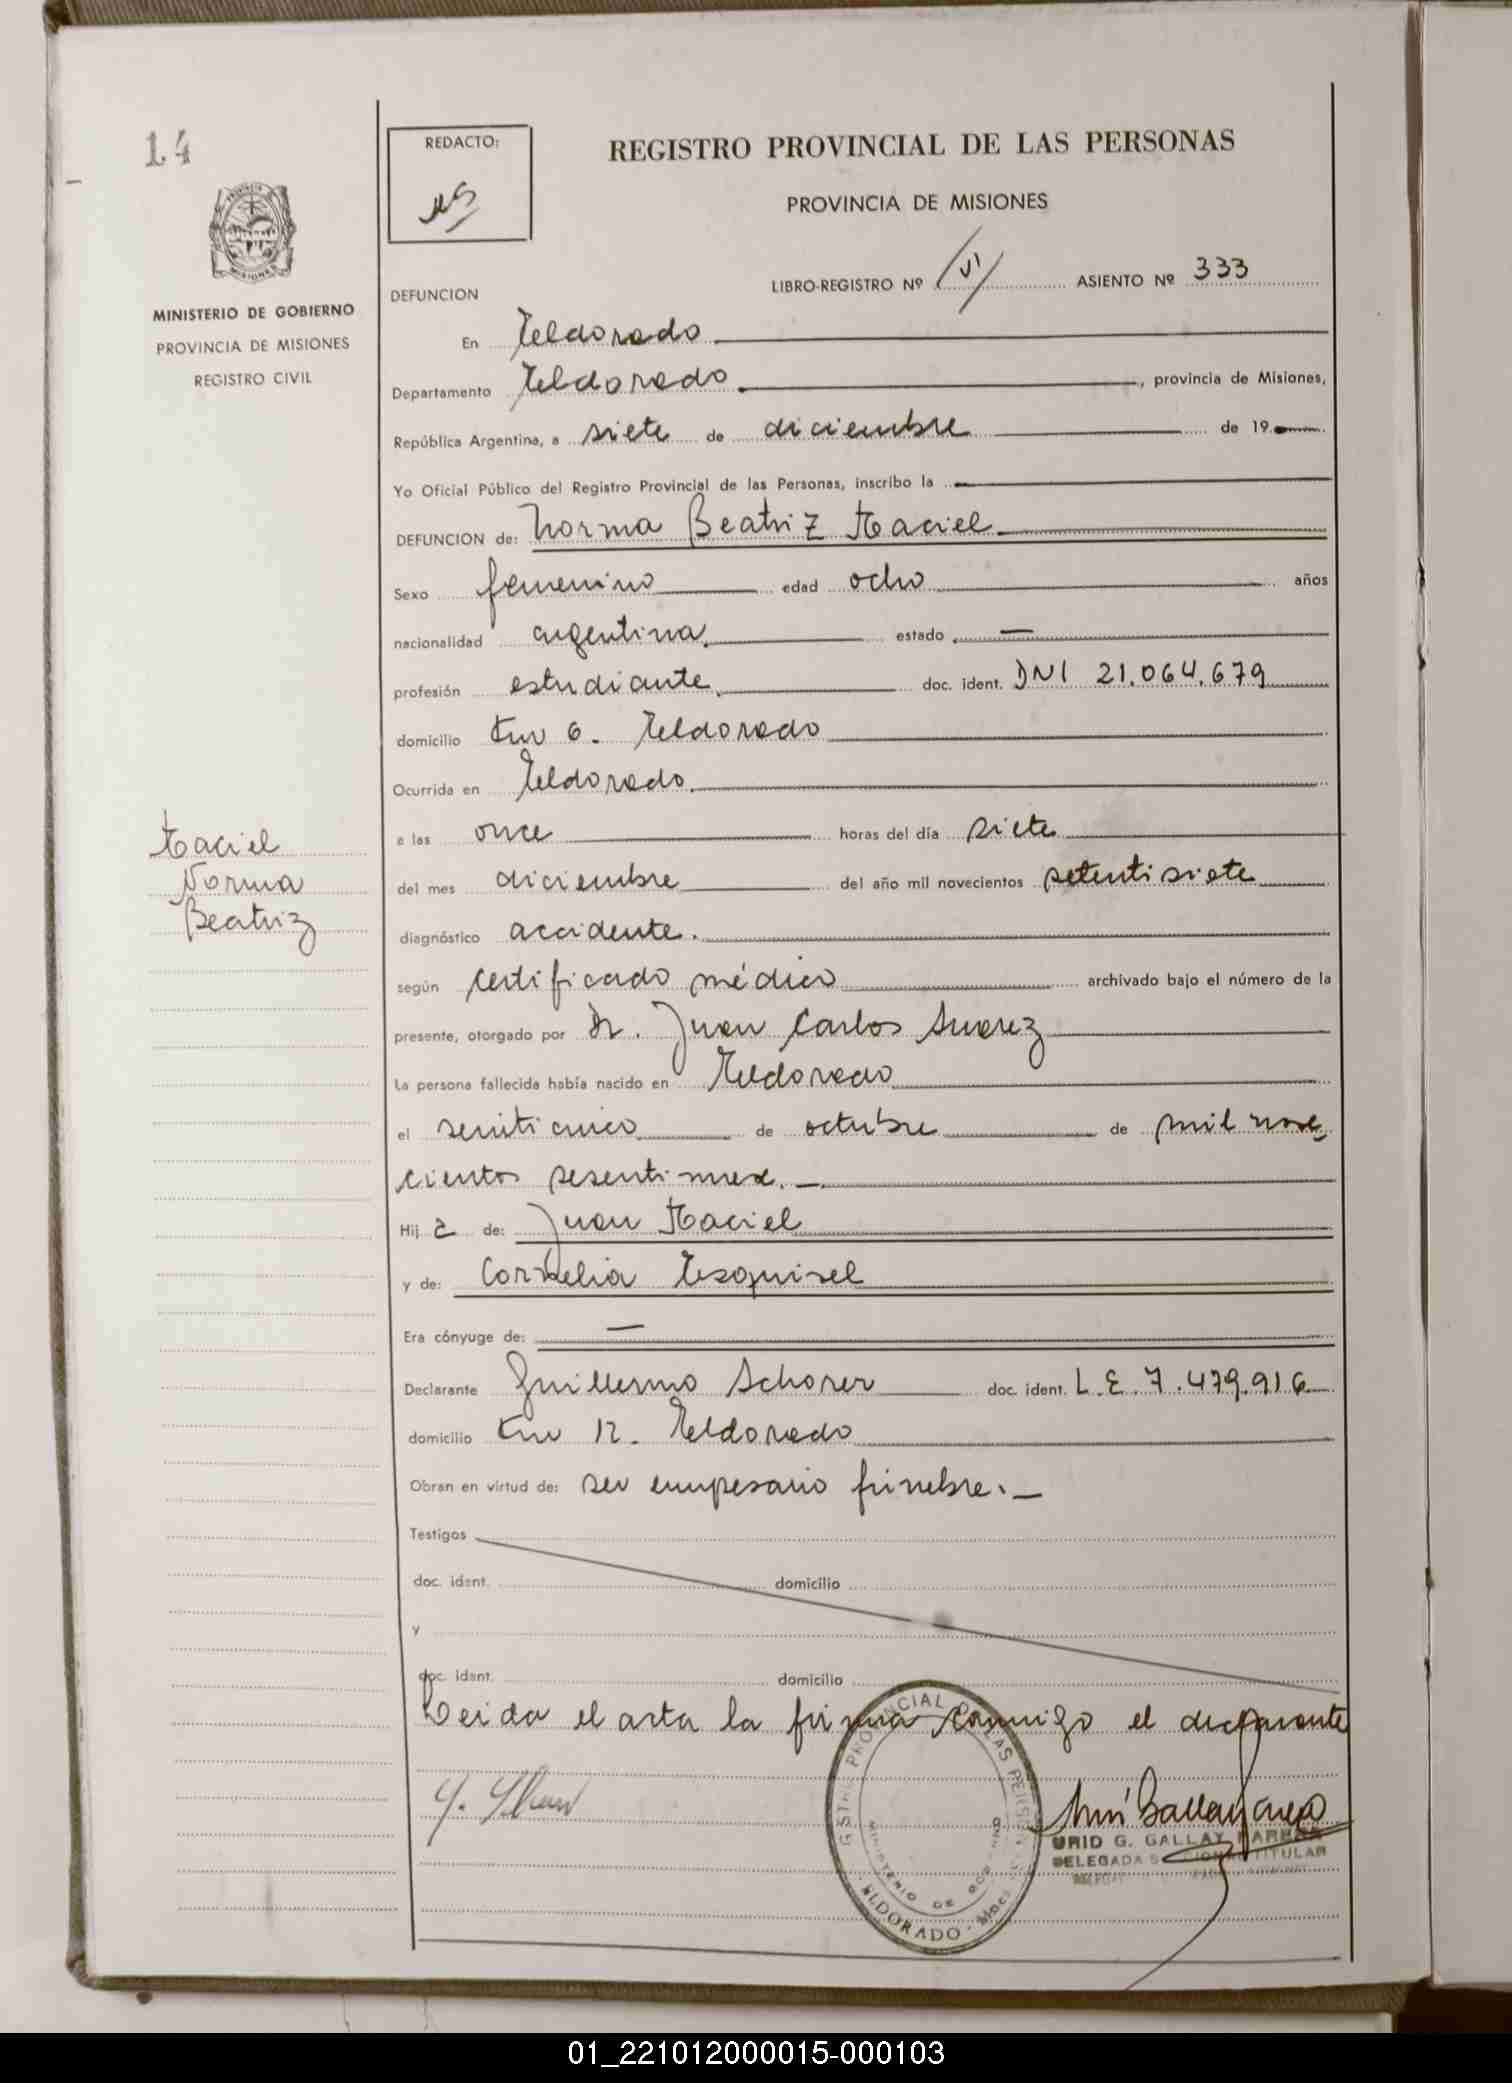 14
REDACTO:
REGISTRO PROVINCIAL DE LAS PERSONAS
PROVINCIA DE MISIONES
MINISTERIO DE GOBIERNO
PROVINCIA DE MISIONES
REGISTRO CIVIL
LIBRO-REGISTRO Nº VI ASIENTO Nº 333
DEFUNCION
En Eldorado
Departamento Eldorado, provincia de Misiones,
República Argentina, a siete de diciembre de 19
Yo Oficial Público del Registro Provincial de las Personas, inscribo la
DEFUNCION de: Norma Beatriz Maciel
Sexo femenino edad ocho años
nacionalidad argentina estado —
profesión estudiante doc. ident. DNI 21.064.679
domicilio Km 6. Eldorado
Ocurrida en Eldorado
a las once horas del día siete
del mes diciembre del año mil novecientos setentisiete
Maciel
Norma
Beatriz
diagnóstico accidente.
según certificado médico archivado bajo el número de la
presente, otorgado por Dr. Juan Carlos Suarez
La persona fallecida había nacido en Eldorado
el veinticinco de octubre de mil nove
cientos sesentinueve.—
Hij a de: Juan Maciel
y de: Cornelia Esquivel
Era cónyuge de: —
Declarante Guillermo Schorer doc. ident. L.E. 7.479.916
domicilio Km 12. Eldorado
Obran en virtud de: ser empesario fúnebre.—
Testigos
doc. ident. domicilio
y
doc. ident. domicilio
Leida el acta la firma conmigo el declarante
PROVINCIAL DE LAS PERSONAS
MINISTERIO DE GOB
ELDORADO
URID G. GALLAY
DELEGADA TITULAR
01_221012000015-000103